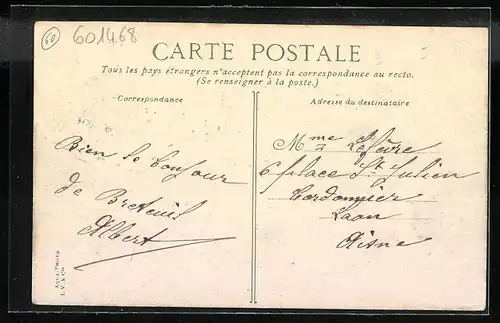 60
601468
CARTE POSTALE
Tous les pays étrangers n'acceptent pas la correspondance au recto.
(Se renseigner à la poste.)
Correspondance
Adresse du destinataire
Bien le bonjour
de Breteuil
Albert
Mme Lefèvre
6 place St Julien
Cordonnier
Laon
Aisne
AQUA-PHOTO
L. V. & Cie